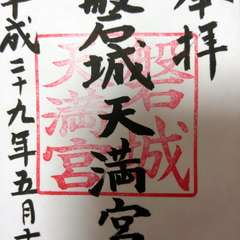 奉拝
磐城天満宮
平成二十九年五月
磐城
天満宮